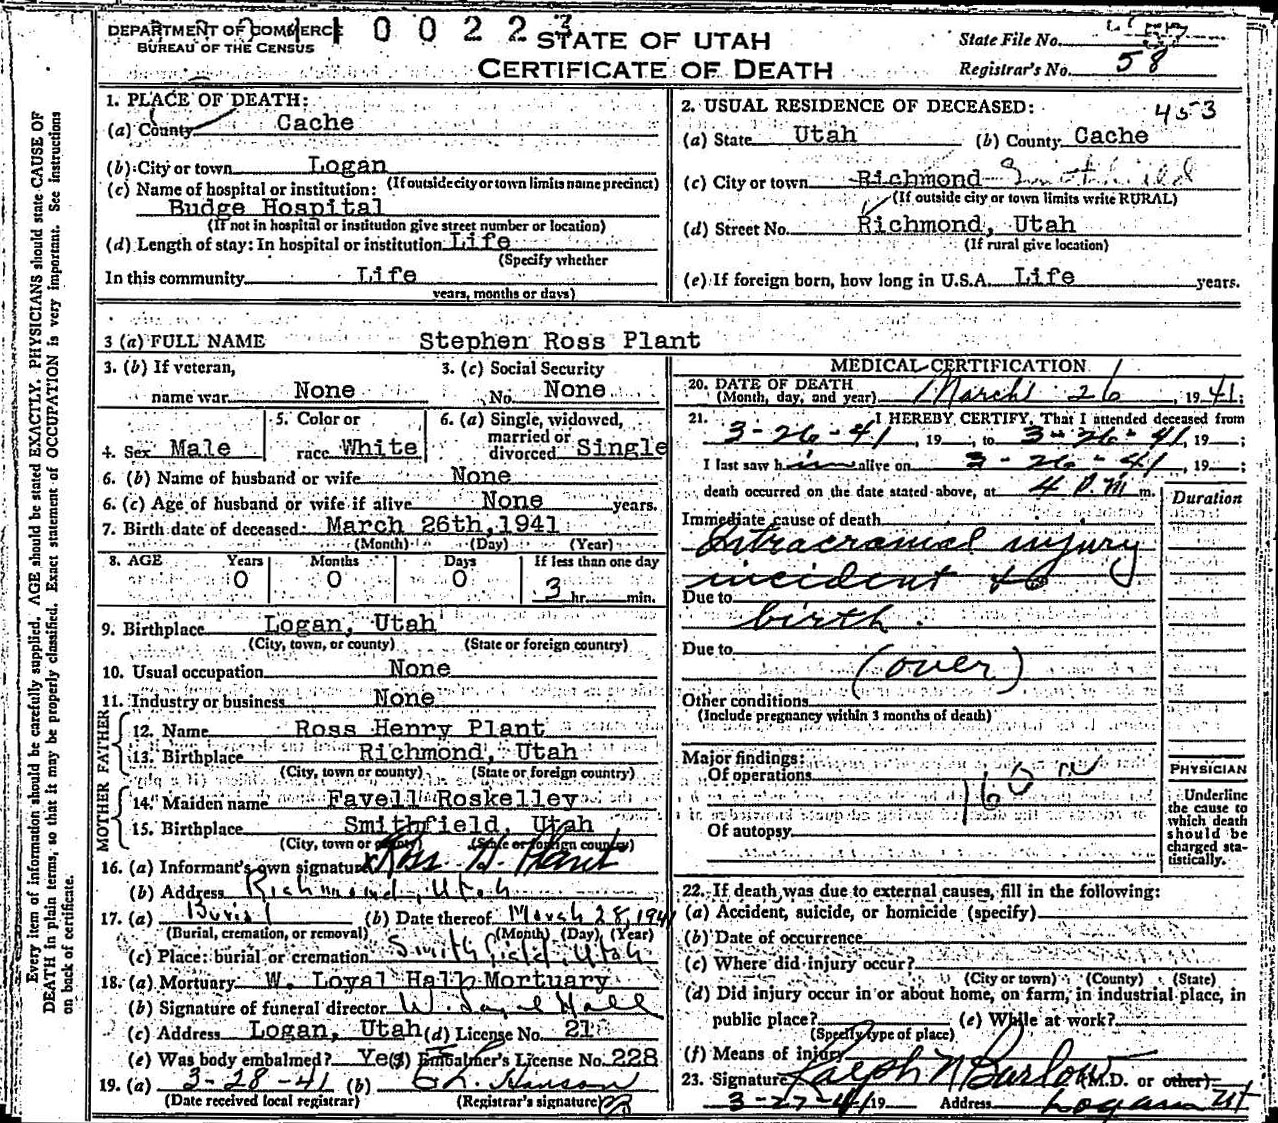 DEPARTMENT OF COMMERCE
BUREAU OF THE CENSUS
0 0 2 2 3
STATE OF UTAH
CERTIFICATE OF DEATH
State File No.
Registrar's No. 58
Every item of information should be carefully supplied. AGE should be stated EXACTLY. PHYSICIANS should state CAUSE OF
DEATH in plain terms, so that it may be properly classified. Exact statement of OCCUPATION is very important. See instructions
on back of certificate.
1. PLACE OF DEATH:
(a) County Cache
(b) City or town Logan
(If outside city or town limits name precinct)
(c) Name of hospital or institution:
Budge Hospital
(If not in hospital or institution give street number or location)
(d) Length of stay: In hospital or institution Life
(Specify whether
In this community Life
years, months or days)
2. USUAL RESIDENCE OF DECEASED: 453
(a) State Utah (b) County Cache
(c) City or town Richmond Smithfield
(If outside city or town limits write RURAL)
(d) Street No. Richmond, Utah
(If rural give location)
(e) If foreign born, how long in U.S.A. Life years.
3 (a) FULL NAME Stephen Ross Plant
3. (b) If veteran,
name war None
3. (c) Social Security
No. None
4. Sex Male
5. Color or
race White
6. (a) Single, widowed,
married or
divorced Single
6. (b) Name of husband or wife None
6. (c) Age of husband or wife if alive None years.
7. Birth date of deceased: March 26th, 1941
(Month) (Day) (Year)
8. AGE Years Months Days If less than one day
0 0 0 3 hr. min.
9. Birthplace Logan, Utah
(City, town, or county) (State or foreign country)
10. Usual occupation None
11. Industry or business None
FATHER
12. Name Ross Henry Plant
13. Birthplace Richmond, Utah
(City, town or county) (State or foreign country)
MOTHER
14. Maiden name Favell Roskelley
15. Birthplace Smithfield, Utah
(City, town or county) (State or foreign country)
16. (a) Informant's own signature x Ross H. Plant
(b) Address Richmond, Utah
17. (a) Burial (b) Date thereof March 28, 1941
(Burial, cremation, or removal) (Month) (Day) (Year)
(c) Place: burial or cremation Smithfield, Utah
18. (a) Mortuary W. Loyal Hall Mortuary
(b) Signature of funeral director W. Loyal Hall
(c) Address Logan, Utah (d) License No. 21
(e) Was body embalmed? Yes (f) Embalmer's License No. 228
19. (a) 3-28-41 (b) Hanson
(Date received local registrar) (Registrar's signature)
MEDICAL CERTIFICATION
20. DATE OF DEATH
(Month, day, and year) March 26, 1941;
21. I HEREBY CERTIFY, That I attended deceased from
3-26-41, 19 , to 3-26-41, 19 ;
I last saw him alive on 3-26-41, 19 ;
death occurred on the date stated above, at 4 P.M m.
Duration
Immediate cause of death
Intracranial injury
incident to
Due to
birth.
Due to
(over)
Other conditions
(Include pregnancy within 3 months of death)
Major findings:
Of operations
160
Of autopsy
PHYSICIAN
Underline
the cause to
which death
should be
charged sta-
tistically.
22. If death was due to external causes, fill in the following:
(a) Accident, suicide, or homicide (specify)
(b) Date of occurrence
(c) Where did injury occur?
(City or town) (County) (State)
(d) Did injury occur in or about home, on farm, in industrial place, in
public place? (e) While at work?
(Specify type of place)
(f) Means of injury
23. Signature Ralph N Barlow (M.D. or other)
3-27-41 19 Address Logan Ut